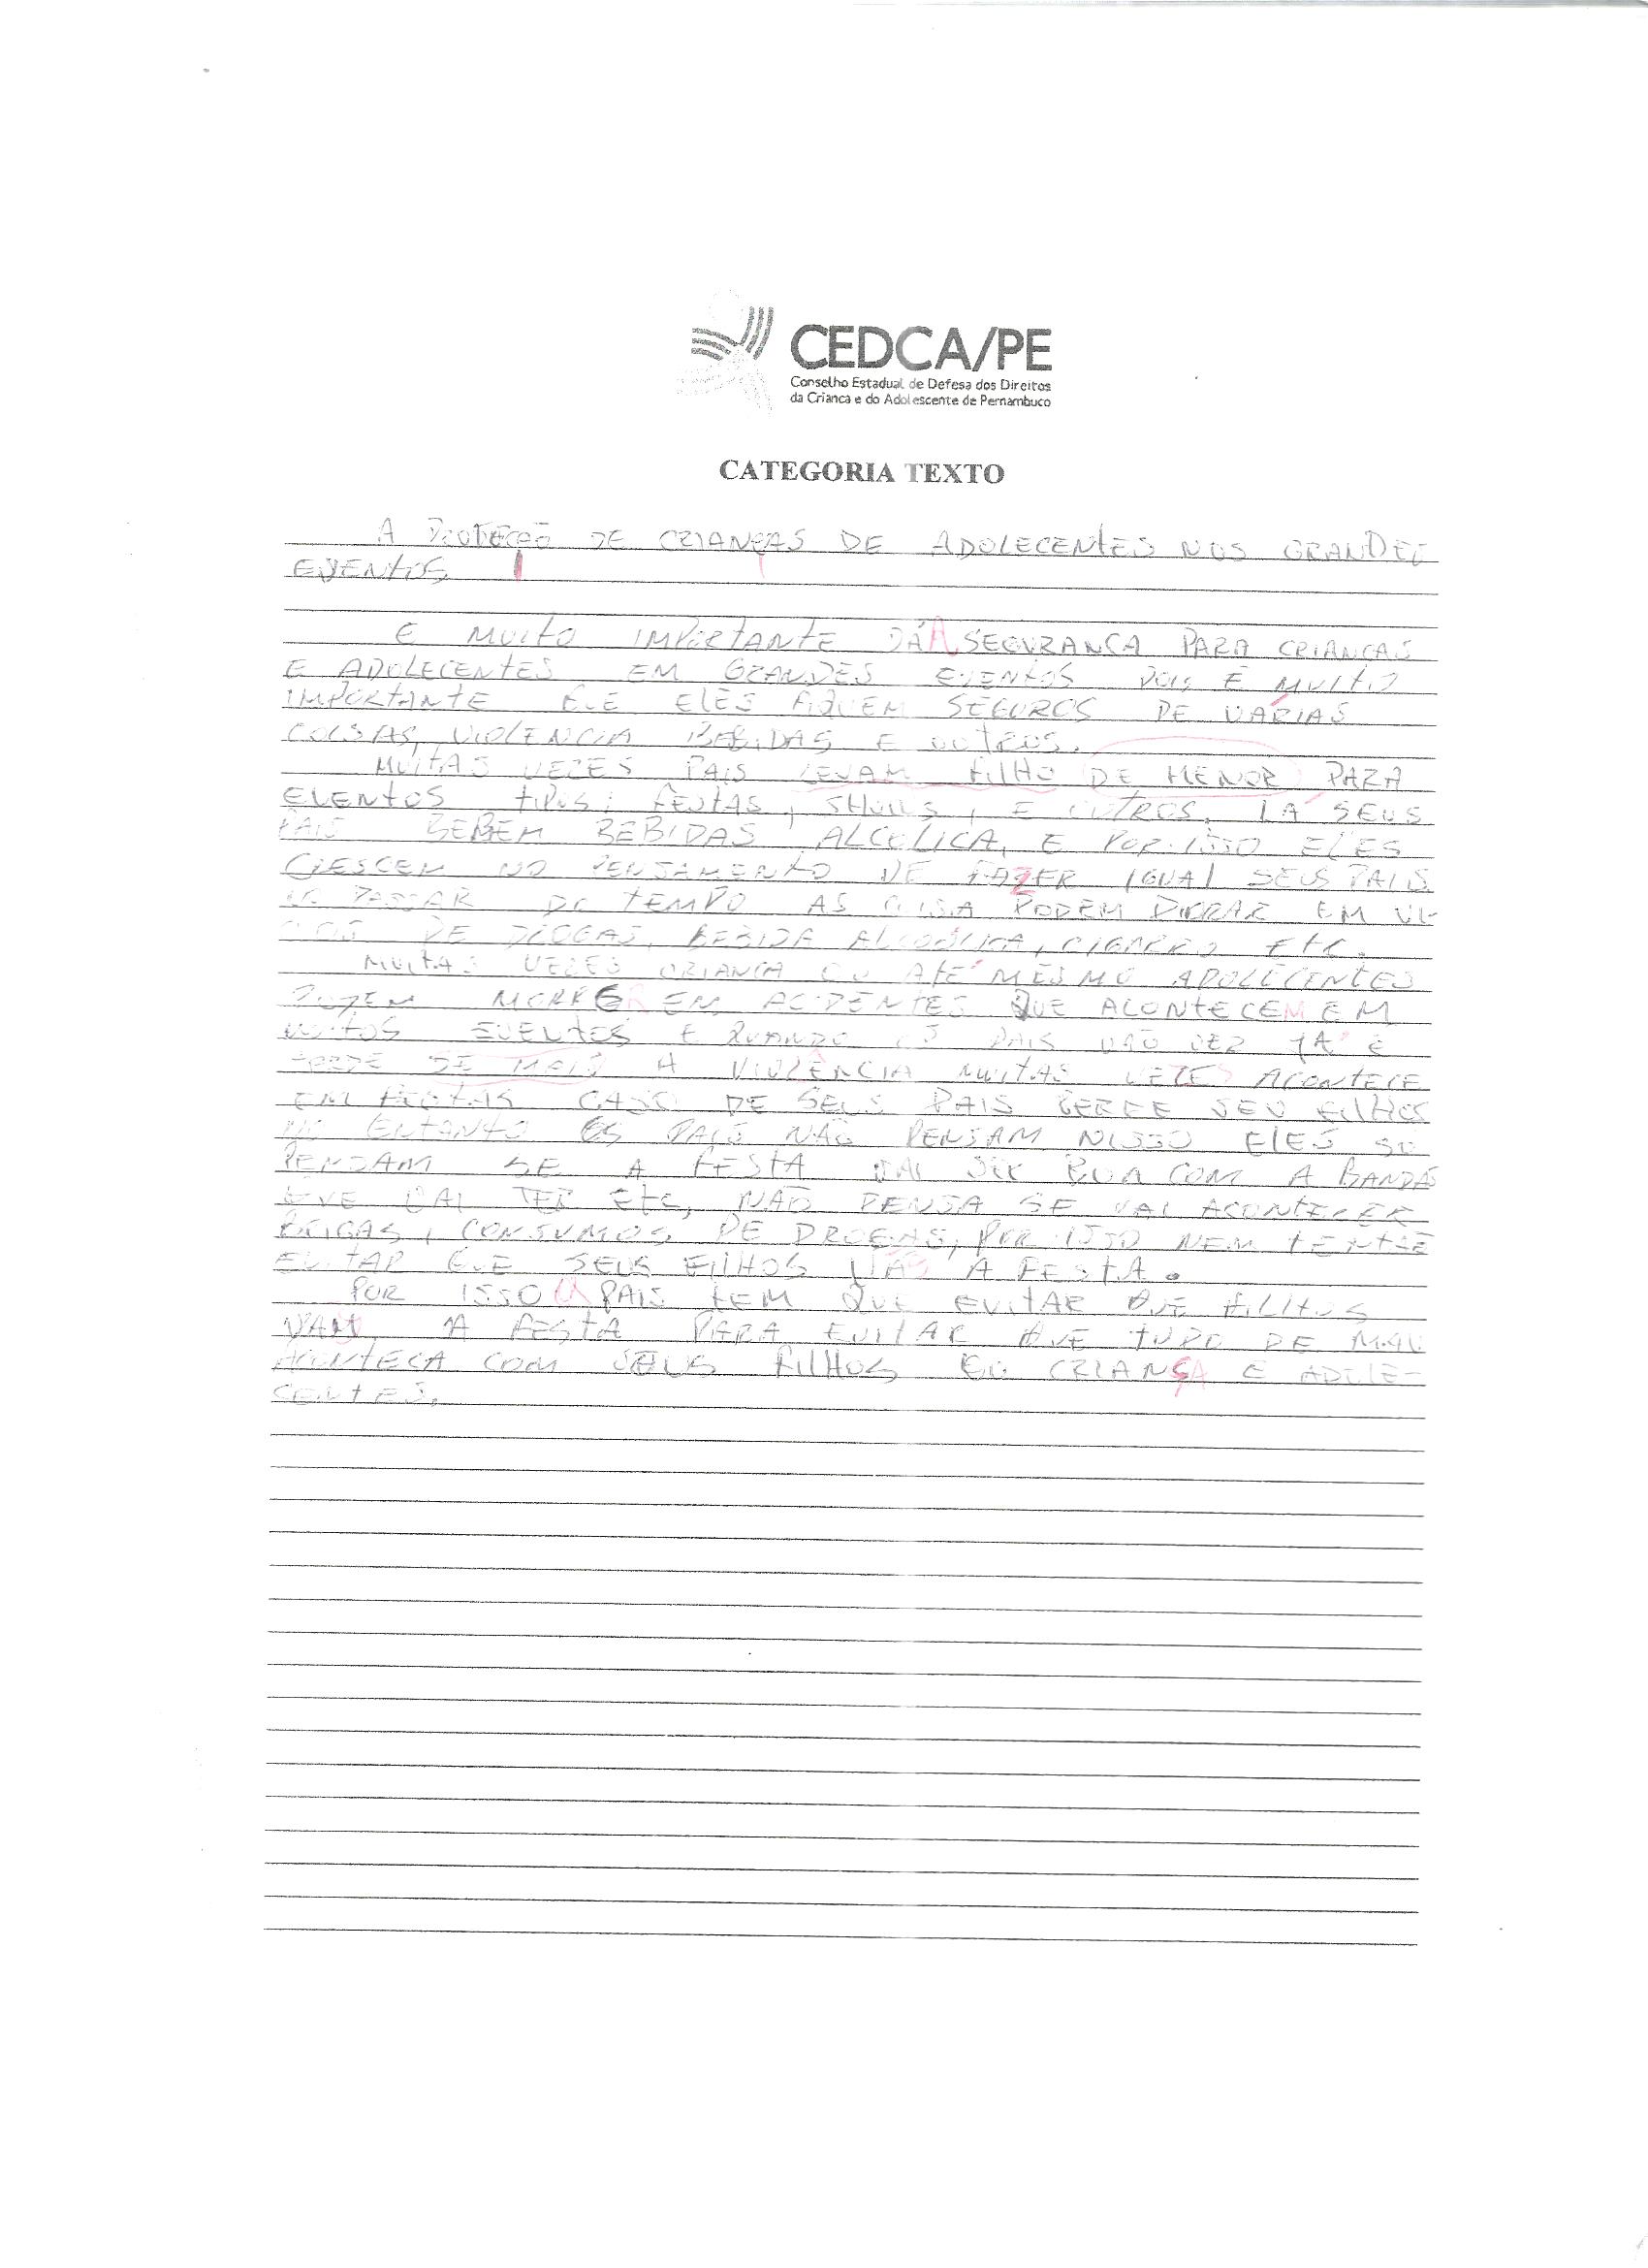 CEDCA/PE
Conselho Estadual de Defesa dos Direitos
da Crianca e do Adolescente de Pernambuco
CATEGORIA TEXTO
A PROTEÇÃO DE CRIANÇAS DE ADOLECENTES NOS GRANDES
EVENTOS
E MUITO IMPORTANTE DÁ A SEGURANCA PARA CRIANCAS
E ADOLECENTES EM GRANDES EVENTOS POIS E MUITO
IMPORTANTE QUE ELES FIQUEM SEGUROS DE VÁRIAS
COISAS, VIOLENCIA BEBIDAS E OUTROS.
MUITAS VEZES PAIS LEVAM FILHO DE MENOR PARA
EVENTOS TIPOS: FESTAS, SHOWS, E OUTROS, LA SEUS
PAIS BEBEM BEBIDAS ALCOLICA, E POR ISSO ELES
CRESCEM NO PENSAMENTO DE FAZER IGUAL SEUS PAIS
PASSAR DO TEMPO AS COISA PODEM PIORAR EM VI-
CIOS DE DROGAS, BEBIDA ALCOOLICA, CIGARRO ETC.
MUITAS VEZES CRIANCA OU ATÉ MESMO ADOLECENTES
PODEM MORRER EM ACIDENTES QUE ACONTECEM EM
EVENTOS E QUANDO OS PAIS VÃO VER JÁ É
TARDE DE MAIS A VIOLÊNCIA MUITAS VEZES ACONTECE
EM FESTAS CASO DE SEUS PAIS BEBEE SEU FILHOS
NO ENTANTO OS PAIS NÃO PENSAM NISSO ELES SO
PENSAM SE A FESTA VAI SER BOA COM A BANDAS
QUE VAI TER ETC, NÃO PENSA SE VAI ACONTECER
BRIGAS, CONSUMOS DE DROGAS, POR ISSO NEM TENTE
EVITAR QUE SEUS FILHOS VÃO A FESTA.
POR ISSO PAIS TEM QUE EVITAR QUE FILHOS
VAM A FESTA PARA EVITAR QUE TUDO DE MAU
ACONTEÇA COM SEUS FILHOS CRIANÇA E ADOLE-
CENTES.